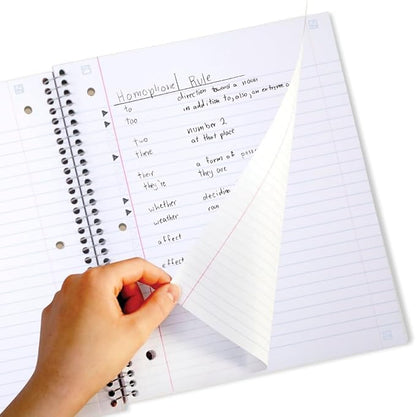 Homophone Rule
to direction toward a noun
too in addition to, also, an extreme
two number 2
there at that place
their a form of
they're they are
whether
weather rain
affect
effect